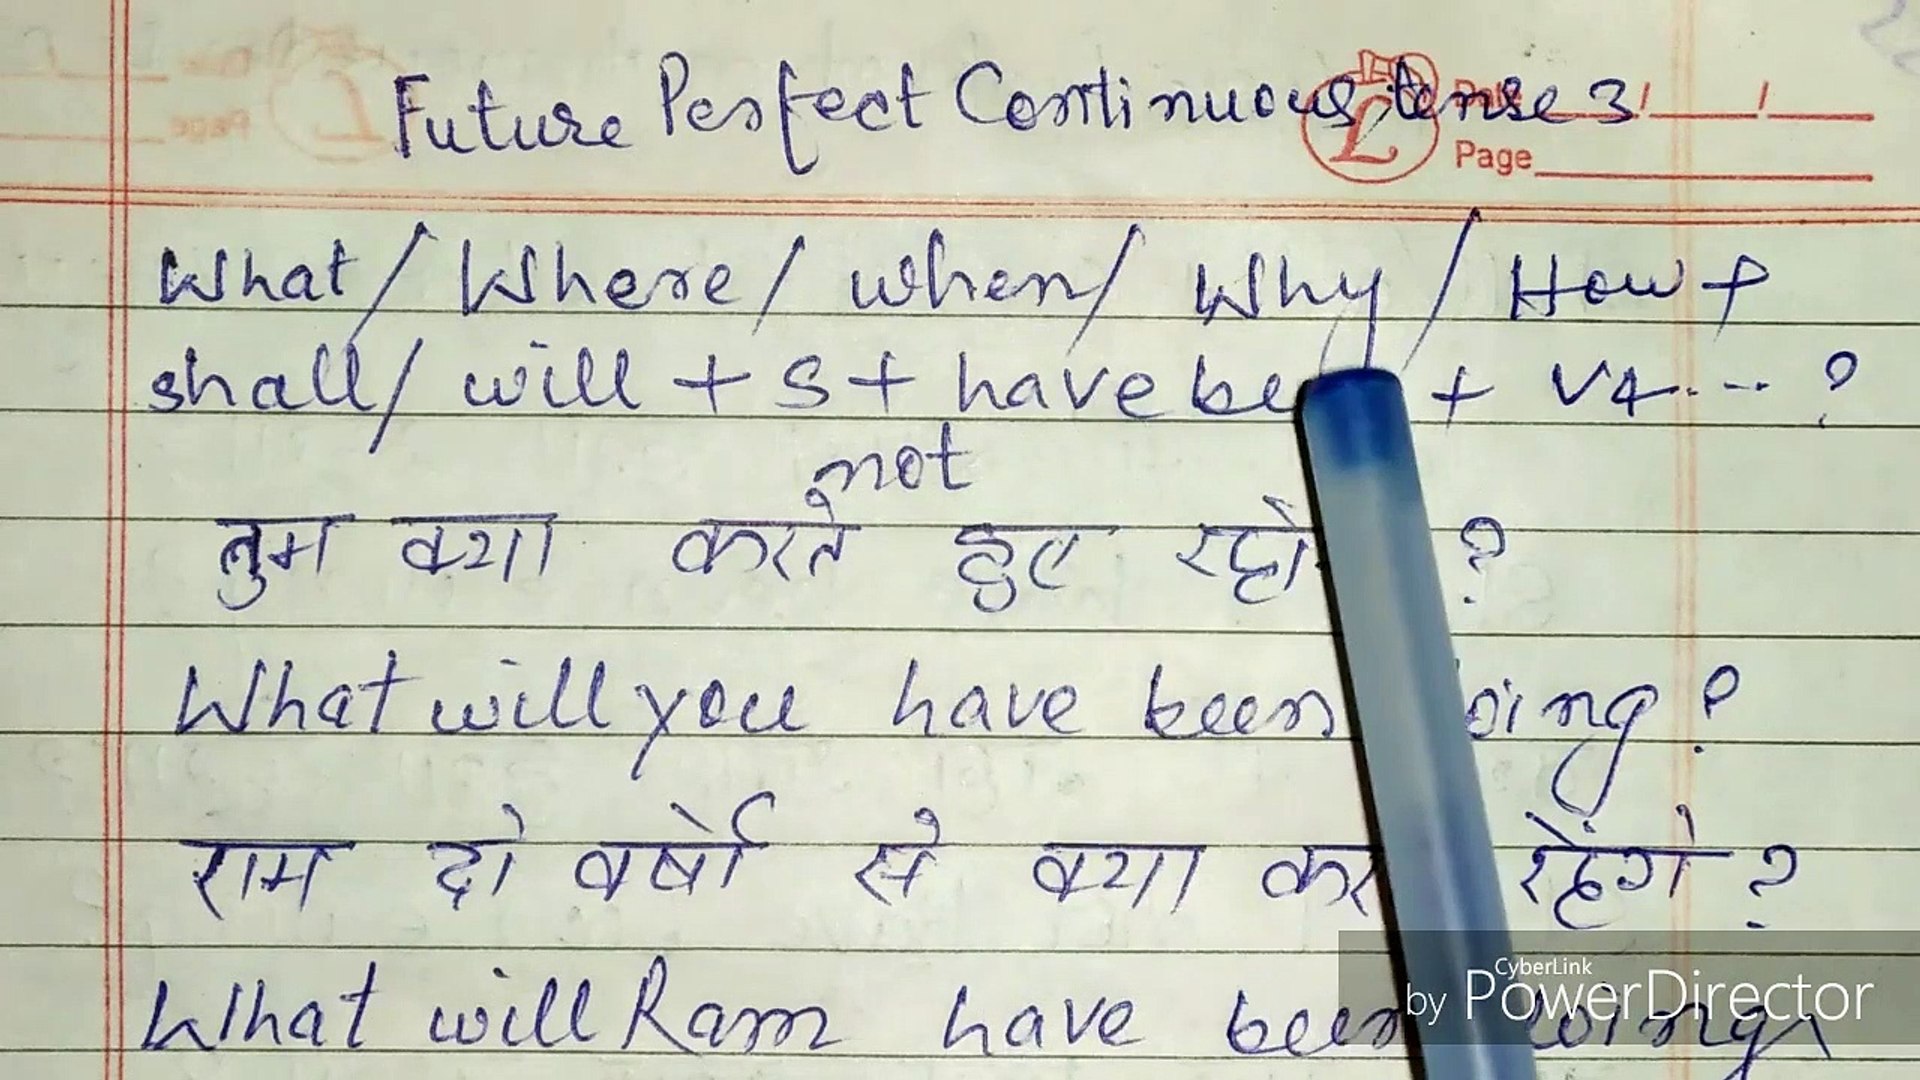 Future Perfect Continuous tense 3
Page
What / Where / when / Why / How +
shall / will + S + have be + V4 --- ?
not
तुम क्या करते हुए रहो ?
What will you have been oing ?
राम दो वर्षो से क्या कर रहेंगे ?
CyberLink
by PowerDirector
What will Ram have been oing